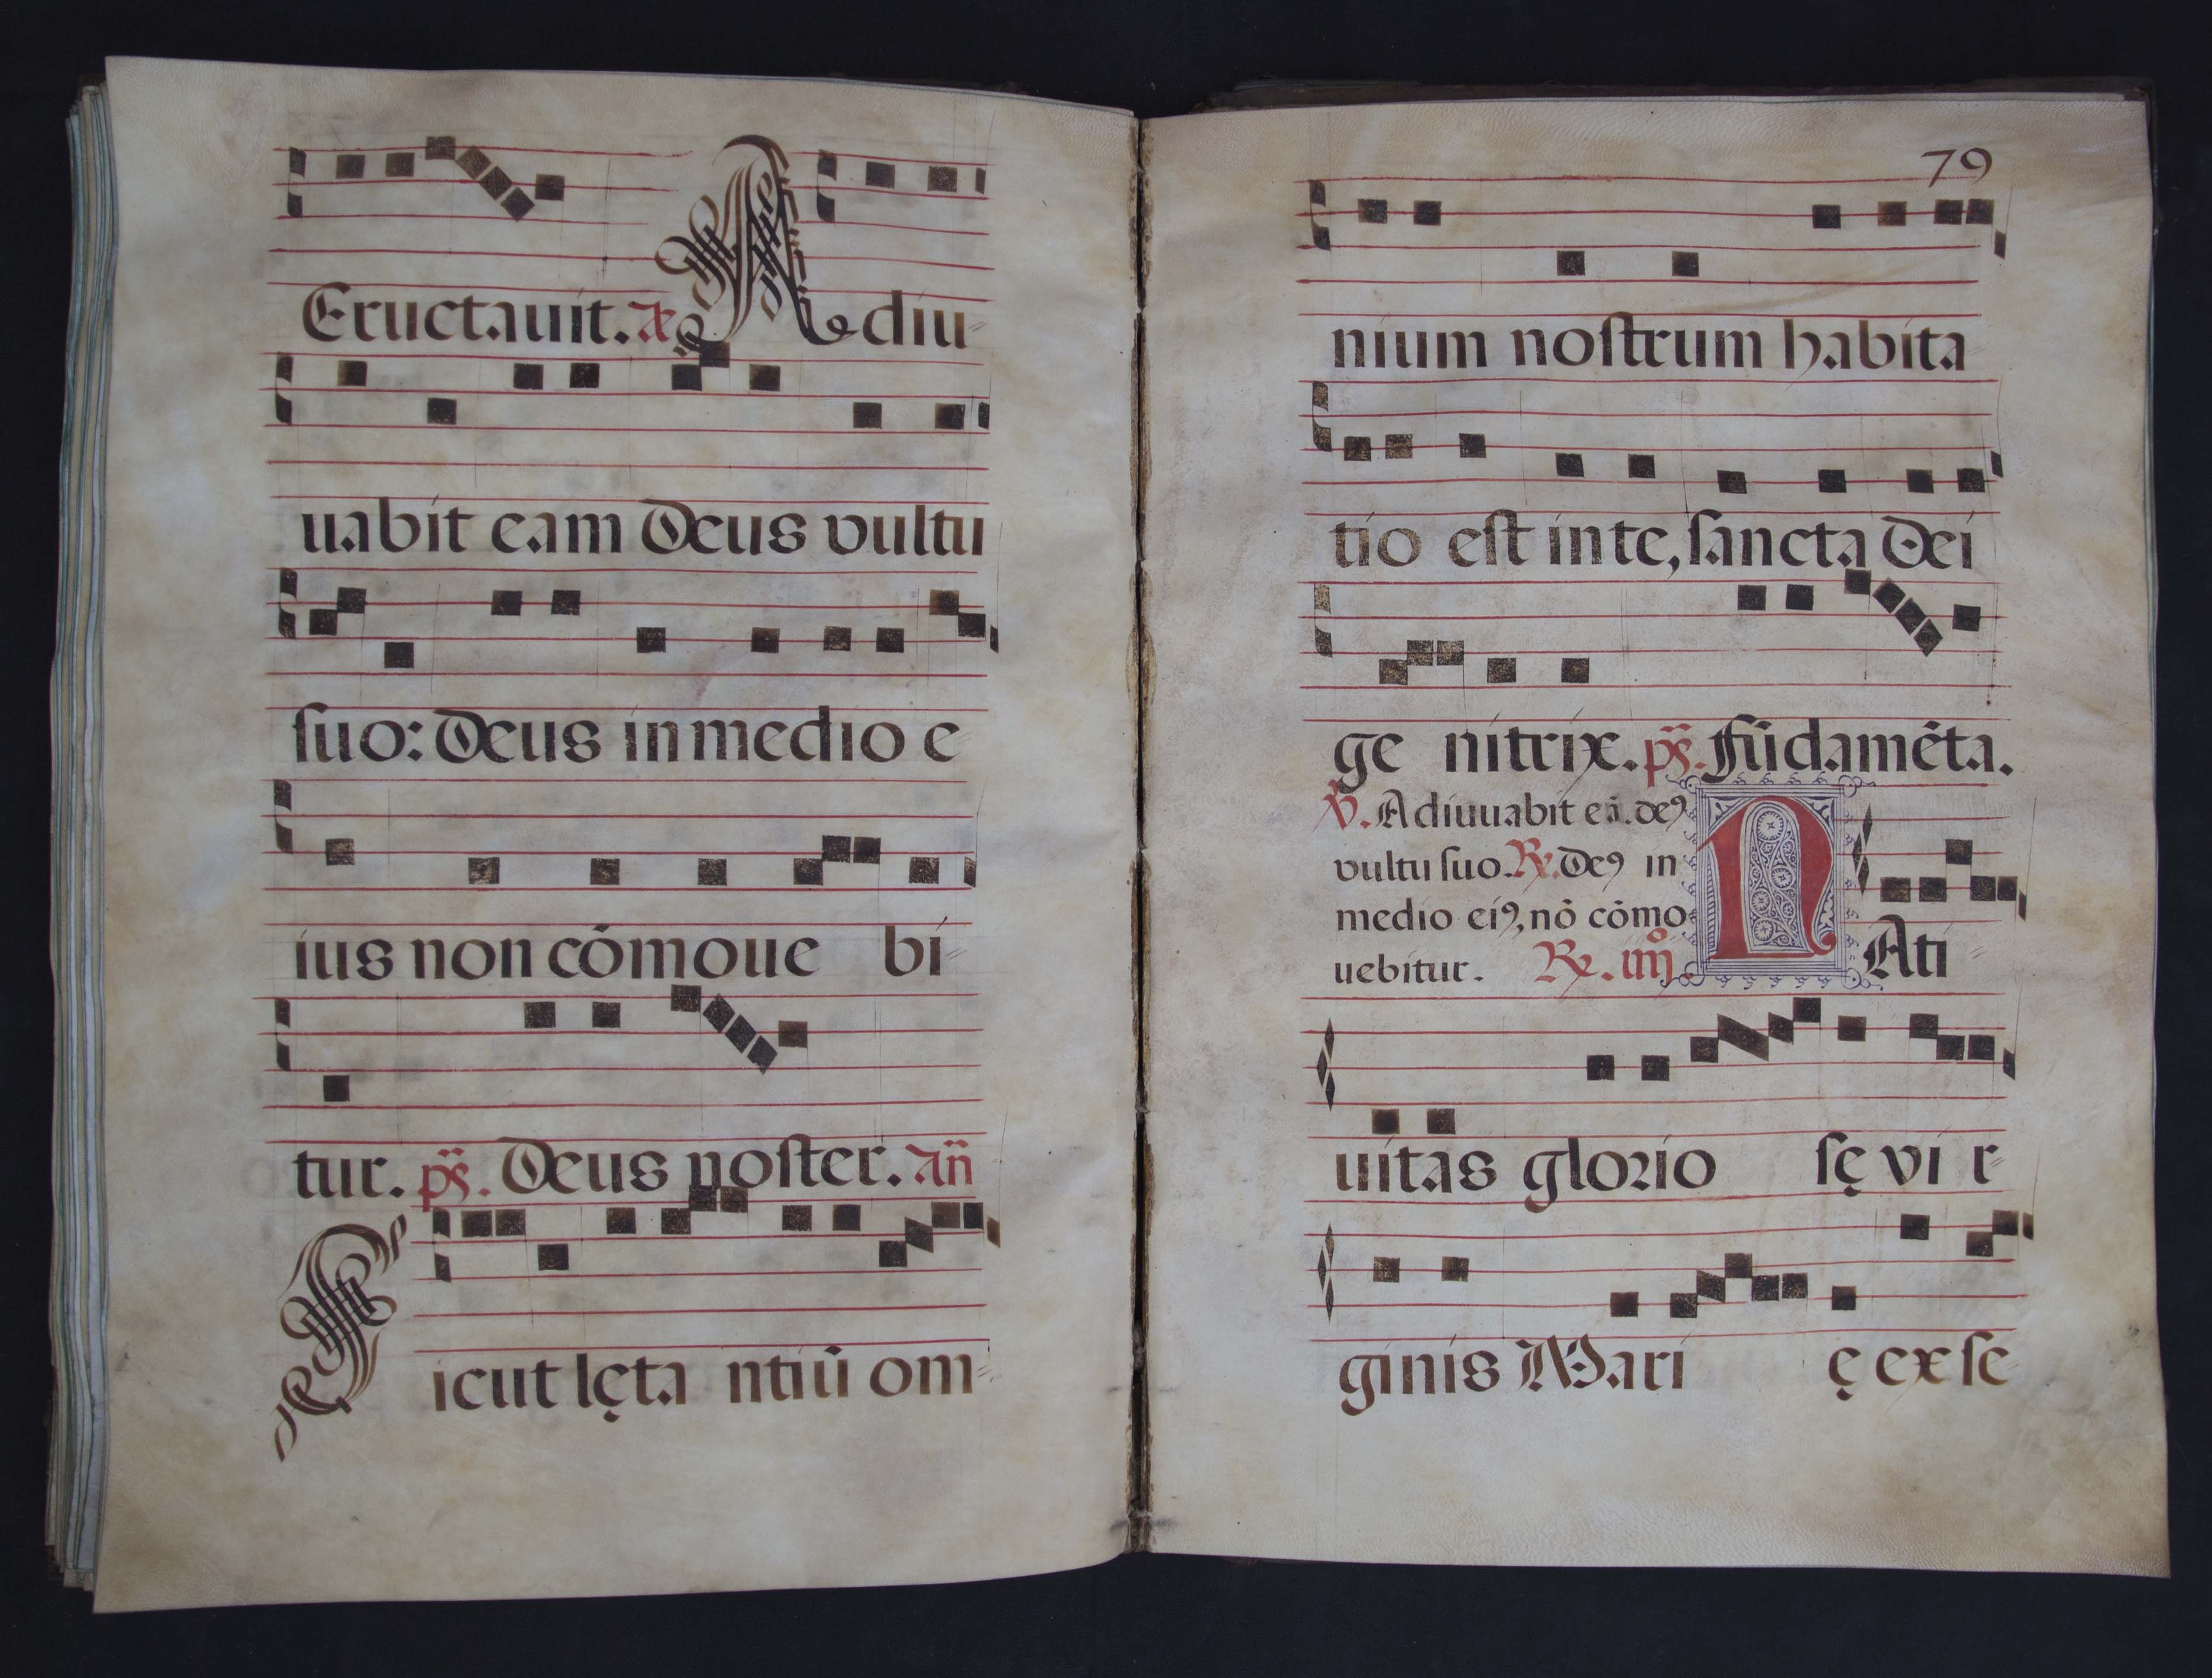 Eructauit. añ Adiu-
uabit eam Deus vultu
ſuo: Deus in medio e
ius non cōmoue bi-
tur. ps̄. Deus noſter. Añ
Sicut lęta ntiū om-
79
nium noſtrum habita-
tio eſt in te, ſancta Dei
ge nitrix. ps̄. Fūdamēta.
℣. Adiuuabit eā. deꝰ
vultu ſuo. ℟. Deꝰ in
medio eiꝰ, nō cōmo
uebitur. ℟. iiijº.
NAti-
uitas glorio ſę vi r-
ginis Mari ę ex ſe-